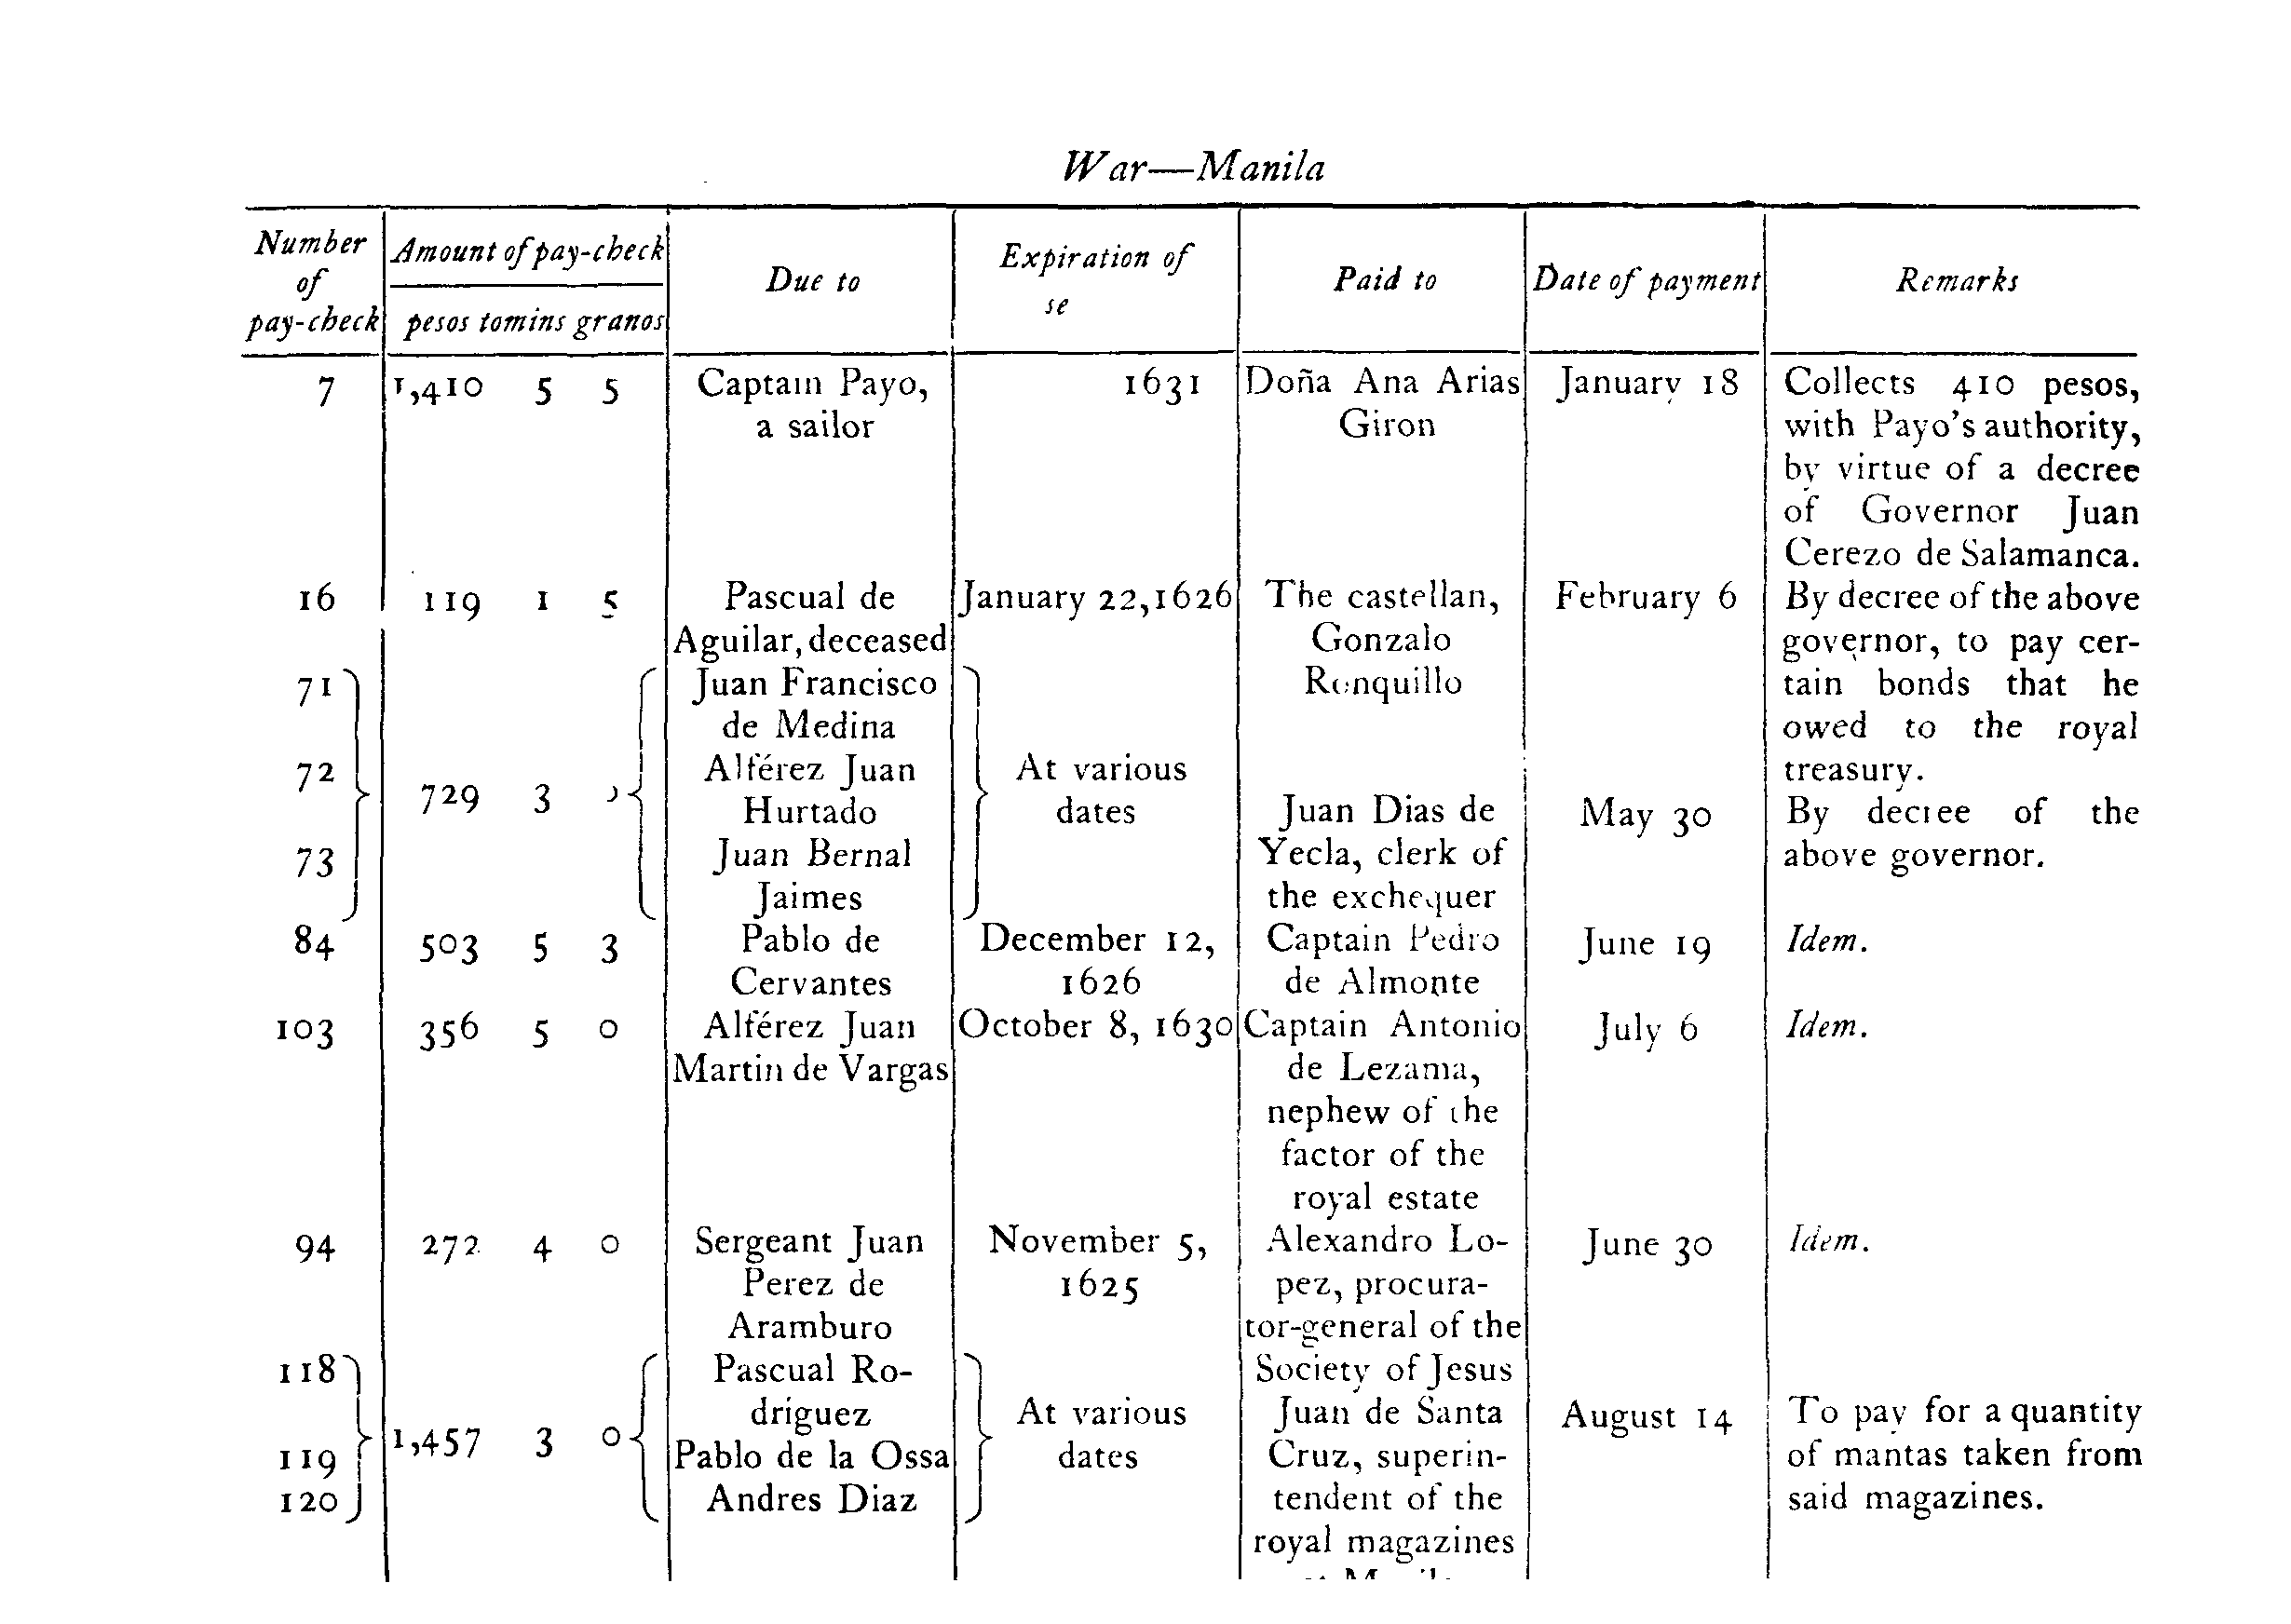 War—Manila
Number of pay-check | Amount of pay-check | Due to | Expiration of se | Paid to | Date of payment | Remarks
pesos tomins granos
7 1,410 5 5 Captain Payo, 1631 Doña Ana Arias January 18 Collects 410 pesos,
a sailor Giron with Payo's authority,
by virtue of a decree
of Governor Juan
Cerezo de Salamanca.
16 119 1 5 Pascual de January 22, 1626 The castellan, February 6 By decree of the above
Aguilar, deceased Gonzalo governor, to pay cer-
71 Juan Francisco Ronquillo tain bonds that he
de Medina owed to the royal
72 Alférez Juan At various treasury.
729 3 Hurtado dates Juan Dias de May 30 By decree of the
73 Juan Bernal Yecla, clerk of above governor.
Jaimes the exchequer
84 503 5 3 Pablo de December 12, Captain Pedro June 19 Idem.
Cervantes 1626 de Almonte
103 356 5 0 Alférez Juan October 8, 1630 Captain Antonio July 6 Idem.
Martin de Vargas de Lezama,
nephew of the
factor of the
royal estate
94 272 4 0 Sergeant Juan November 5, Alexandro Lo- June 30 Idem.
Perez de 1625 pez, procura-
Aramburo tor-general of the
118 Pascual Ro- Society of Jesus
driguez At various Juan de Santa August 14 To pay for a quantity
119 1,457 3 0 Pablo de la Ossa dates Cruz, superin- of mantas taken from
120 Andres Diaz tendent of the said magazines.
royal magazines